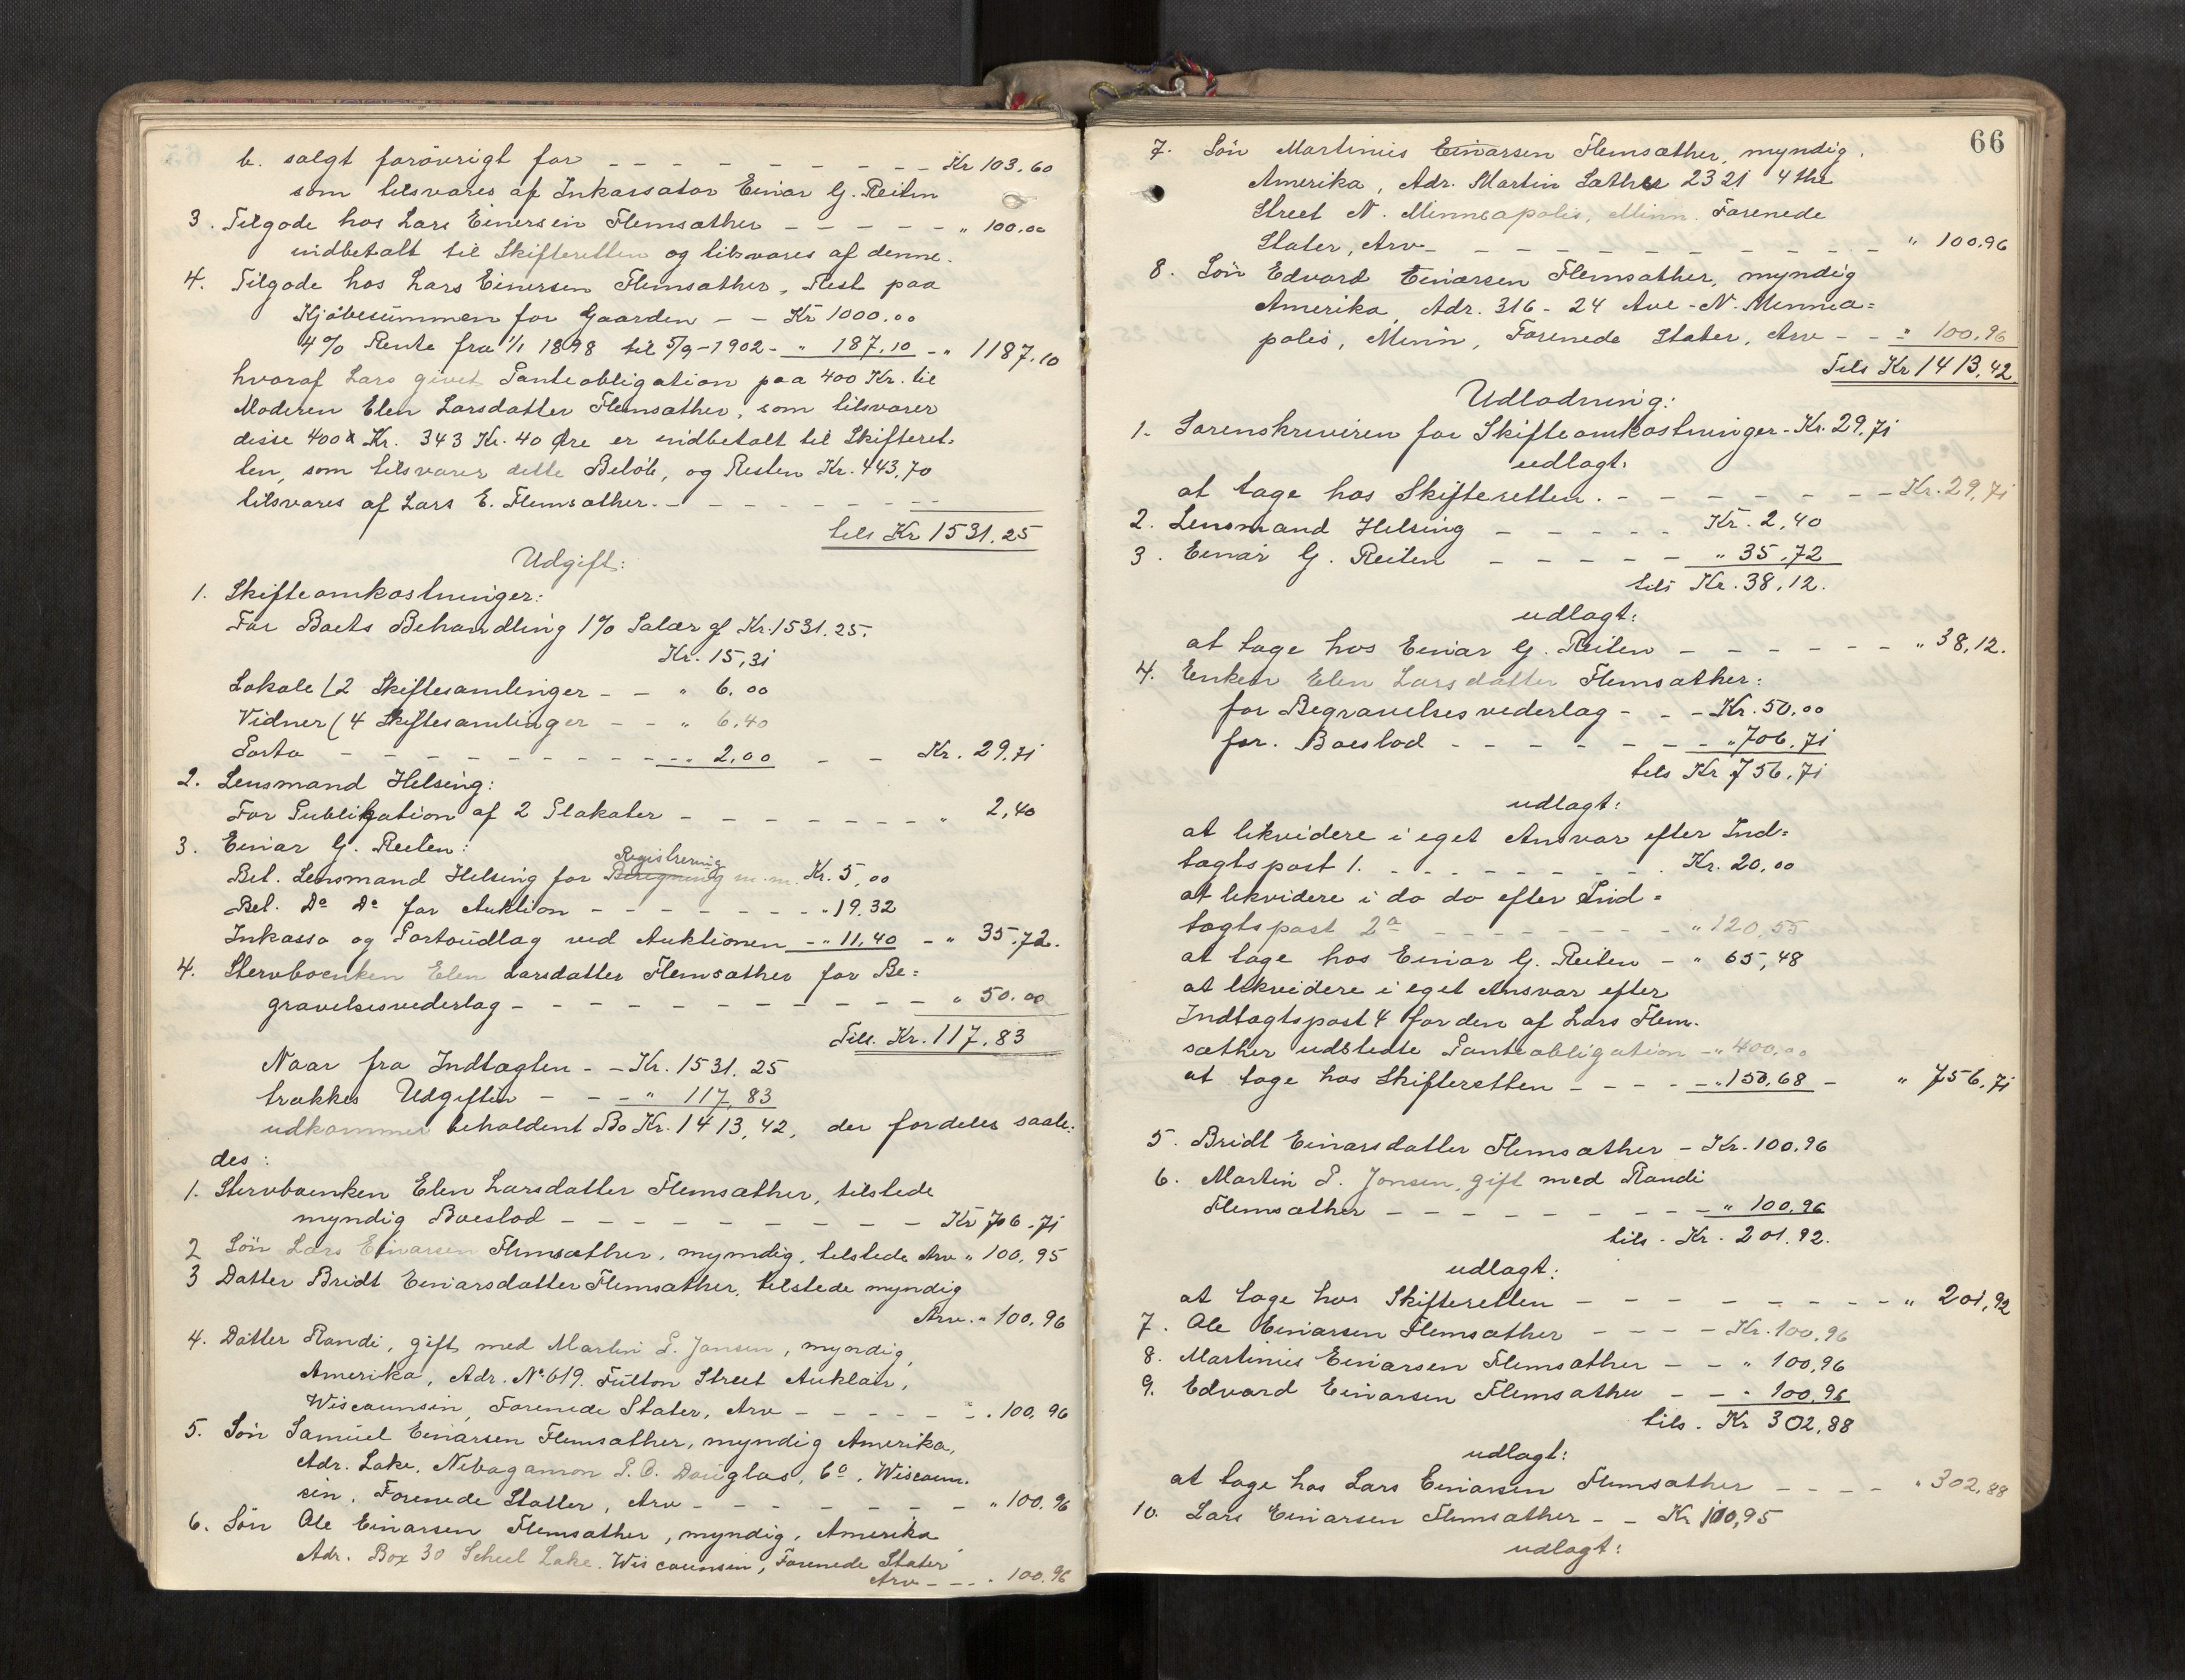 b. solgt forøvrigt for - - - - - - - - - - Kr 103.60
som tilsvares af Inkassator Einar G. Reiten
3. Tilgode hos Lars Einersen Flemsæther - - - - - " 100.00
indbetalt til Skifteretten og tilsvares af denne.
4. Tilgode hos Lars Einersen Flemsæther, Rest paa
Kjøbesummen for Gaarden - - Kr 1000.00
4 % Rente fra 1/1 1898 til 5/9-1902 - " 187.10 - " 1187.10
hvoraf Lars givet Panteobligation paa 400 Kr. til
Moderen Elen Larsdatter Flemsæther, som tilsvarer
disse 400 Kr. 343 Kr. 40 Øre er indbetalt til Skifteret-
ten, som tilsvarer dette Beløb, og Resten Kr. 443,70
tilsvares af Lars E. Flemsæther. - - - - - - - -
tils Kr 1531.25
Udgift:
1. Skifteomkostninger:
For Boets Behandling 1% Salær af Kr. 1531.25.
Kr. 15,31
Lokale / 2 Skiftesamlinger - - " 6.00
Vidner ( 4 Skiftesamlinger - - " 6.40
Porto - - - - - - - - - - " 2,00 - - Kr. 29,71
2. Lensmand Helsing:
For Publikation af 2 Plakater - - - - - - - - " 2,40
3. Einar G. Reiten:
Registrering
Bet. Lensmand Helsing for Beregning m.m. Kr. 5,00
Bet. Do Do for Auktion - - - - - - - " 19.32
Inkasso og Portoudlag ved Auktionen - " 11,40 - " 35.72.
4. Stervboenken Elen Larsdatter Flemsæther for Be=
gravelsesvederlag - - - - - - - - - - - - " 50.00
Till. Kr. 117.83
Naar fra Indtægten - - Kr. 1531.25
trækkes Udgiften - - - " 117,83
udkommer beholdent Bo Kr. 1413,42, der fordeles saale=
des:
1. Stervboenken Elen Larsdatter Flemsæther, tilstede
myndig Boeslod - - - - - - - - - Kr 706.71
2 Søn Lars Einarsen Flemsæther, myndig, tilstede Arv " 100,95
3 Datter Bridt Einarsdatter Flemsæther, tilstede myndig
Arv. " 100,96
4. Datter Randi, gift med Martin P. Jonsen, myndig,
Amerika, Adr. No. 619. Fulton Street Auklair,
Wiscounsin, Forenede Stater, Arv - - - - - - " 100,96
5. Søn Samuel Einarsen Flemsæther, myndig Amerika,
Adr. Lake. Nebagamon P. O. Douglas, Co, Wiscoun-
sin, Forenede Statter, Arv - - - - - - - - " 100.96
6. Søn Ole Einarsen Flemsæther, myndig, Amerika
Adr. Box 30 Scheel Lake. Wiscounsin, Forenede Stater
Arv - - - " 100.96
66
7. Søn Martinus Einarsen Flemsæther, myndig.
Amerika, Adr. Martin Sather 2321 4 the
Street N. Minneapolis, Minn. Forenede
Stater, Arv - - - - - - - - - - - - - " 100.96
8. Søn Edvard Einarsen Flemsæther, myndig
Amerika, Adr. 316 - 24 Ave - N. Minnea=
polis, Minn, Forenede Stater, Arv - - " 100,96
Tils Kr 1413,42
Udlodning:
1. Sorenskriveren for Skifteomkostninger - Kr. 29,71
udlagt:
at tage hos Skifteretten. - - - - - - - - Kr. 29,71
2. Lensmand Helsing - - - - - Kr. 2,40
3. Einar G. Reiten - - - - - - " 35,72
tils Kr. 38,12.
udlagt:
at tage hos Einar G. Reiten - - - - - - " 38,12.
4. Enken Elen Larsdatter Flemsæther:
for Begravelsesvederlag - - - Kr. 50,00
for. Boeslod - - - - - - - - " 706,71
tils Kr 756,71
udlagt:
at likvidere i eget Ansvar efter Ind=
tægtspost 1. - - - - - - - - . Kr. 20,00
at likvidere i do do efter Ind=
tægtspost 2a - - - - - - - - " 120,55
at tage hos Einar G. Reiten - " 65,48
at likvidere i eget Ansvar efter
Indtægtspost 4 for den af Lars Flem-
sæther udstedte Panteobligation - " 400,00
at tage hos Skifteretten - - - - " 150,68 - " 756,71
5. Bridt Einarsdatter Flemsæther - Kr. 100,96
6. Martin P. Jonsen, gift med Randi
Flemsæther - - - - - - - - - - " 100,96
tils. Kr. 201,92.
udlagt:
at tage hos Skifteretten - - - - - - - - - " 201,92
7. Ole Einarsen Flemsæther - - - - Kr. 100,96
8. Martinus Einarsen Flemsæther - - " 100,96
9. Edvard Einarsen Flemsæther - - " 100,96
tils. Kr 302,88
udlagt:
at tage hos Lars Einarsen Flemsæther - - - - " 302,88
10. Lars Einarsen Flemsæther - - Kr 100,95
udlagt: